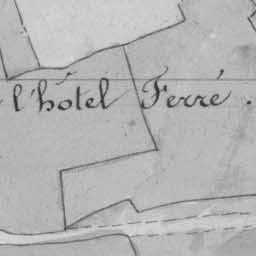 l'hôtel Ferré.